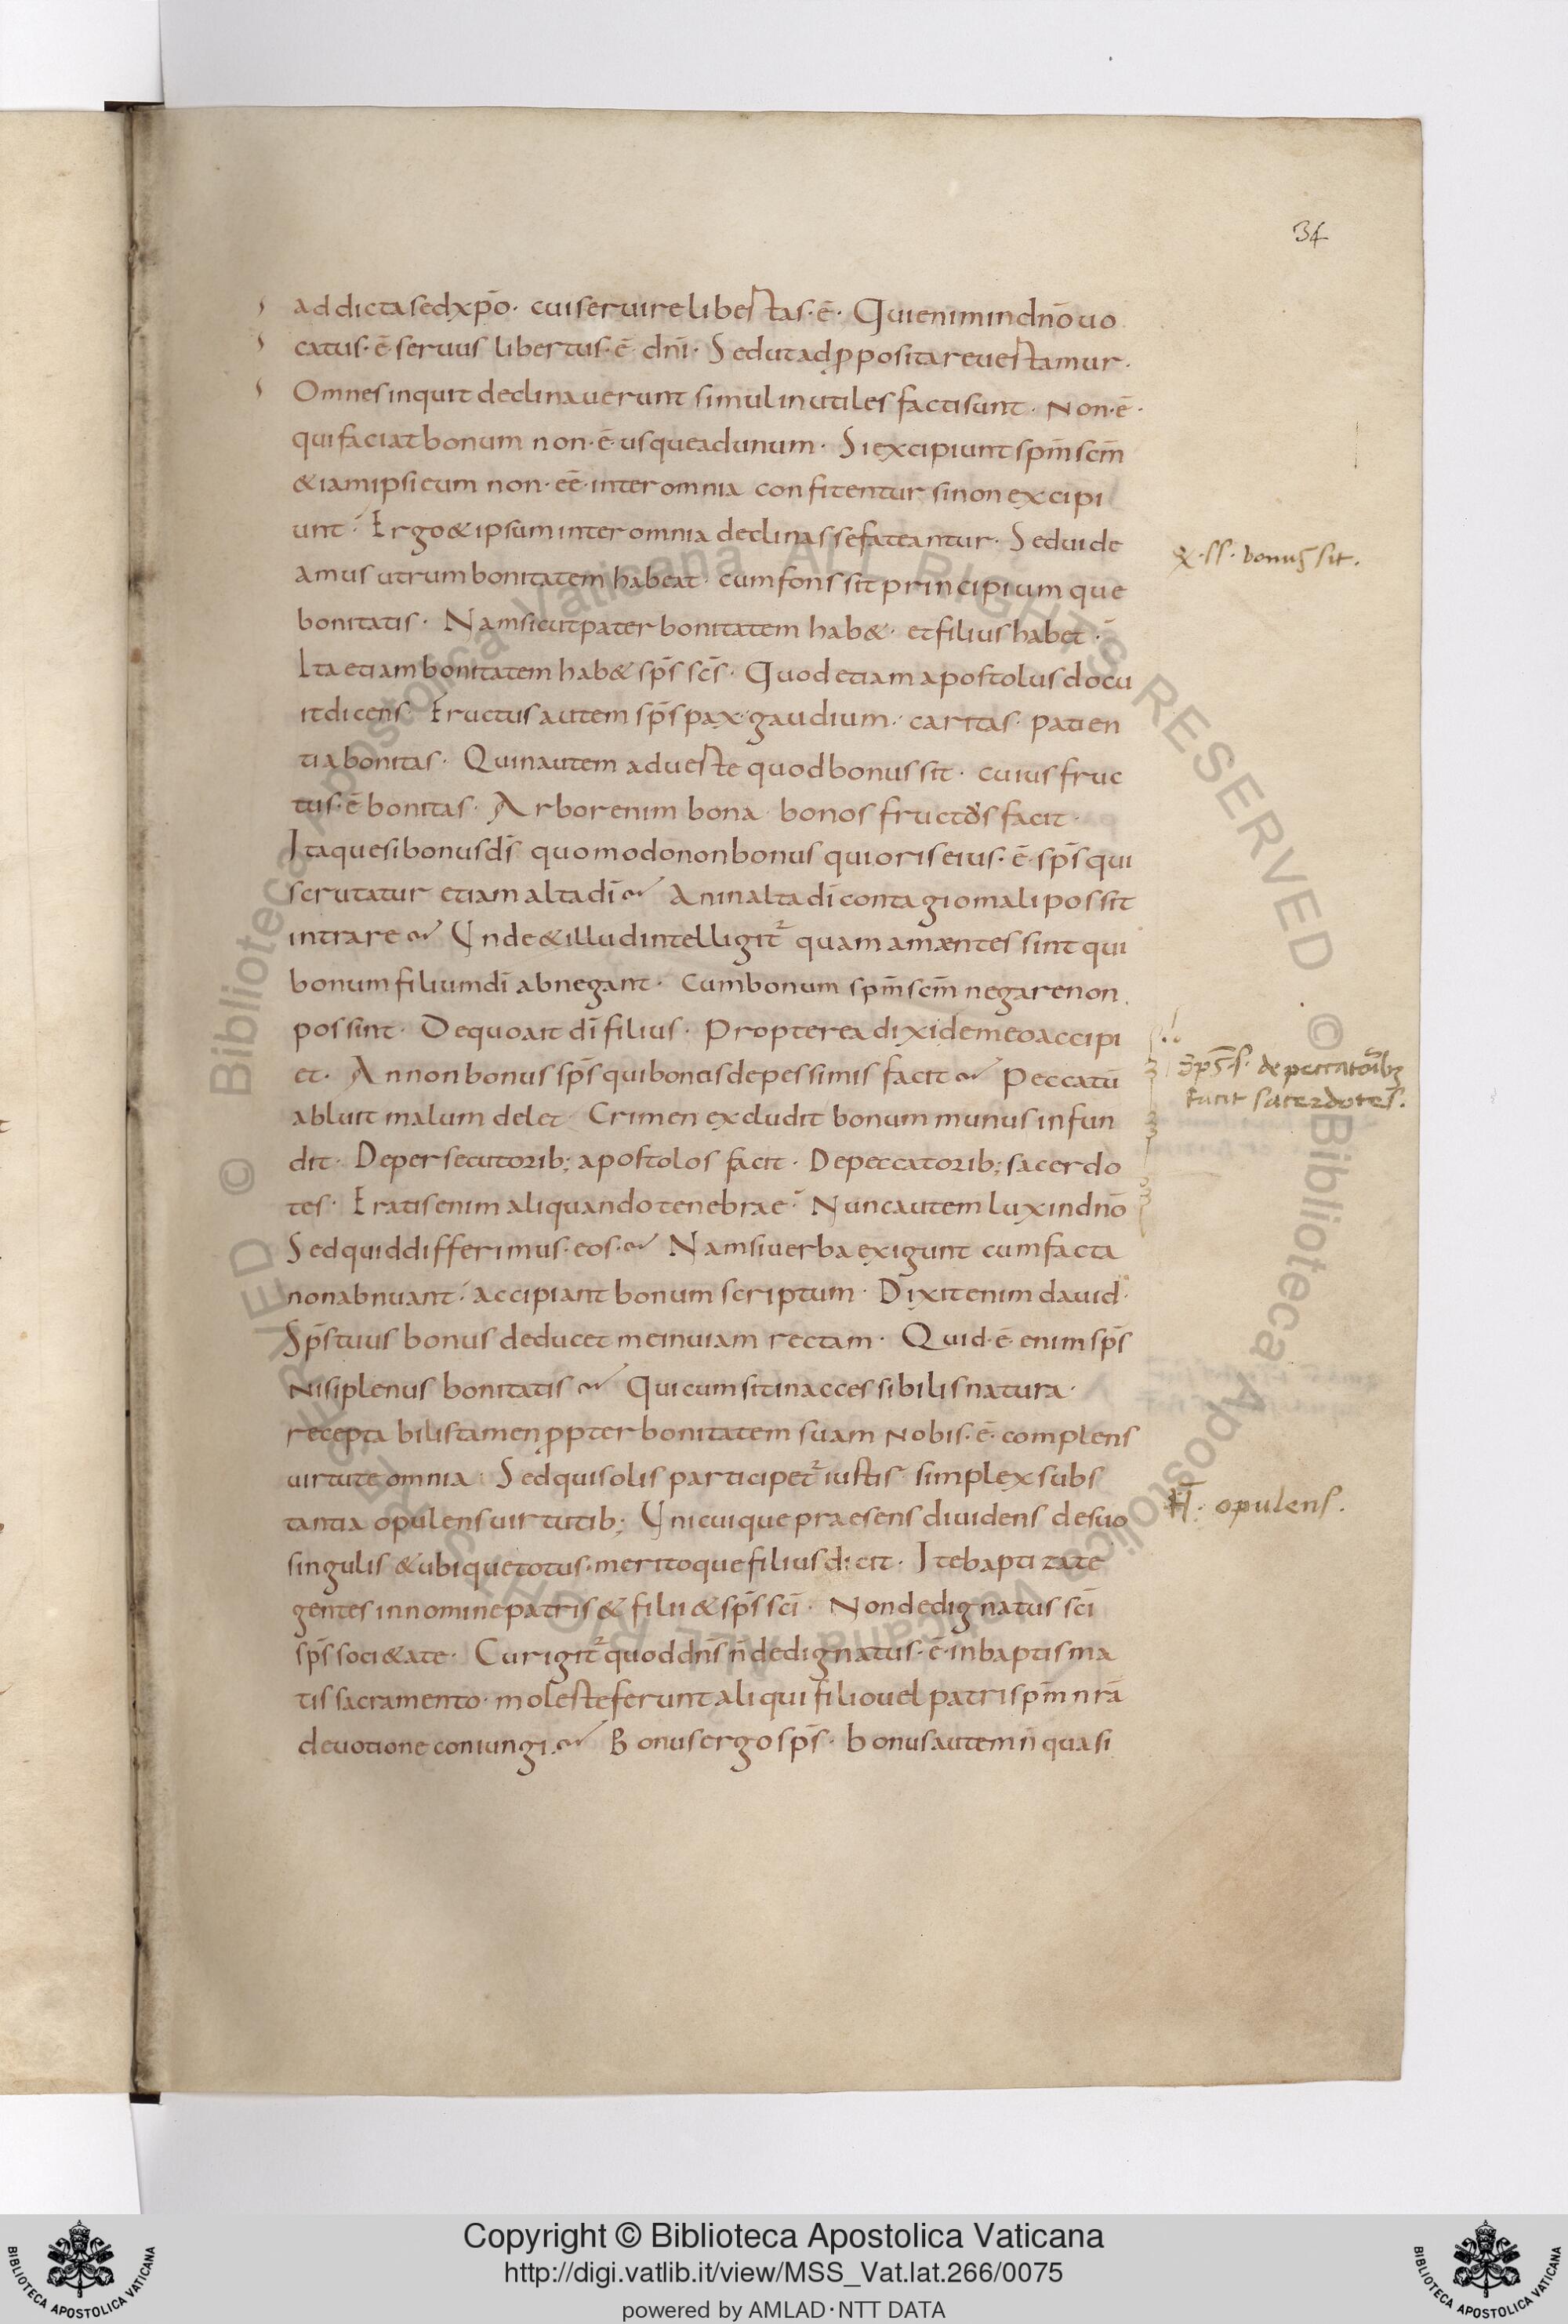 34
addicta sed xp̄o · cui seruire libertas · ē · Qui enim in dn̄o uo
catus · ē seruus libertus · ē dn̄i · Sed ut ad ꝓposita reuertamur ·
Omnes inquit declinauerunt simul inutiles facti sunt · Non · ē ·
qui faciat bonum non · ē usque ad unum · Si excipiunt sp̄m sc̄m
& iam ipsi eum non · eē · inter omnia confitentur si non excipi
unt · Ergo & ipsum inter omnia declinasse fateantur · Sed uide
amus utrum bonitatem habeat · cum fons sit principiumque
bonitatis · Nam sicut pater bonitatem hab& · et filius habet ·
Ita etiam bonitatem hab& sp̄s sc̄s · Quod etiam apostolus docu
it dicens · Fructus autem sp̄s pax · gaudium · caritas · patien
tia bonitas · Qui nautem aduerte quod bonus sit · cuius fruc
tus · ē bonitas · Arbor enim bona bonos fructos facit
Itaque si bonus ds̄ quomodo non bonus qui oris eius · ē · sp̄s qui
scrutatur etiam alta dī An in alta dī contagio mali possit
intrare Unde & illud intelligit᷑ quam amentes sint qui
bonum filium dī abnegant · Cum bonum sp̄m sc̄m negare non
possint · De quo ait dī filius · Propterea dixi de meo accipi
et · An non bonus sp̄s qui bonos de pessimis facit Peccatū
abluit malum delet · Crimen excludit bonum munus infun
dit · De persecutorib; apostolos facit · De peccatorib; sacerdo
tes · Eratis enim aliquando tenebrae · Nunc autem lux in dn̄o
Sed quid differimus · eos · Nam si uerba exigunt cum facta
non abnuant · accipiant bonum scriptum · Dixit enim dauid ·
Sp̄s tuus bonus deducet me in uiam rectam · Quid · ē enim sp̄s
Nisi plenus bonitatis Qui cum sit inaccessibilis natura ·
receptabilis tamen ꝓpter bonitatem suam nobis · ē · complens
uirtute omnia · Sed qui solis participet᷑ iustis simplex subs
tantia opulens uirtutib; Unicuique praesens diuidens de suo
singulis & ubique totus · meritoque filius dicit · Ite baptizate
gentes in nomine patris & filii & sp̄s sc̄i · Non dedignatus sc̄i
sp̄s soci&ate · Cur igit᷑ quod dn̄s n̄ dedignatus · ē · in baptisma
tis sacramento · moleste ferunt aliqui filio uel patri sp̄m nr̄ā
deuotione coniungi · Bonus ergo sp̄s · bonus autem n̄ quasi
ꝙ · ss · bonus sit .
Sp̄s · s · de peccatorib;
facit sacerdotes .
opulens .
Copyright © Biblioteca Apostolica Vaticana
http://digi.vatlib.it/view/MSS_Vat.lat.266/0075
powered by AMLAD·NTT DATA
BIBLIOTECA APOSTOLICA VATICANA
BIBLIOTECA APOSTOLICA VATICANA
© Biblioteca Apostolica Vaticana ALL RIGHTS RESERVED © Biblioteca Apostolica Vaticana ALL RIGHTS RESERVED